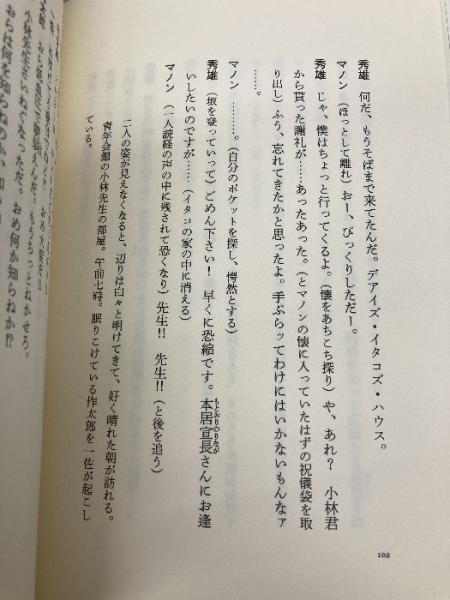 秀雄　何だ、もうそばまで来てたんだ。デアイズ・イタコズ・ハウス。
マノン　（ほっとして離れ）おー、びっくりしただー。
秀雄　じゃ、僕はちょっと行ってくるよ。（懐をあちこち探り）や、あれ？　小林君
から貰った謝礼が……あったあった。（とマノンの懐に入っていたはずの祝儀袋を取
り出し）ふう、忘れてきたかと思ったよ。手ぶらッてわけにはいかないもんなァ
……。
マノン　………。（自分のポケットを探し、愕然とする）
秀雄　（坂を登っていって）ごめん下さい！　早くに恐縮です。本居宣長さんにお逢
もとおりのりなが
いしたいのですが……（イタコの家の中に消える）
マノン　（一人読経の声の中に残されて恐くなり）先生!!　先生!!（と後を追う）
二人の姿が見えなくなると、辺りは白々と明けてきて、好く晴れた朝が訪れる。
青年会館の小林先生の部屋。午前七時。眠りこけている作太郎を一佐が起こし
ている。
小林先生さいねぐなっただ。
102